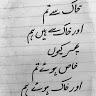 خاک سے تم
اور خاک سے ہیں ہم
پھر کیوں
خاص ہوئے تم
اور خاک ہوئے ہم